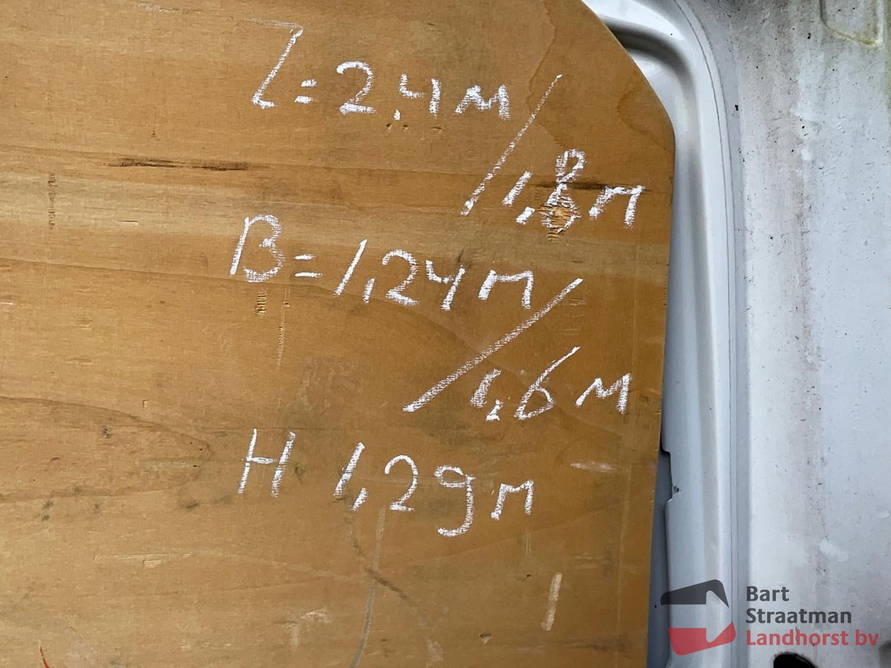 L=2,4м
/1,8m
B=1,24m
/1,6м
H 1,29m
Bart
Straatman
Landhorst bv